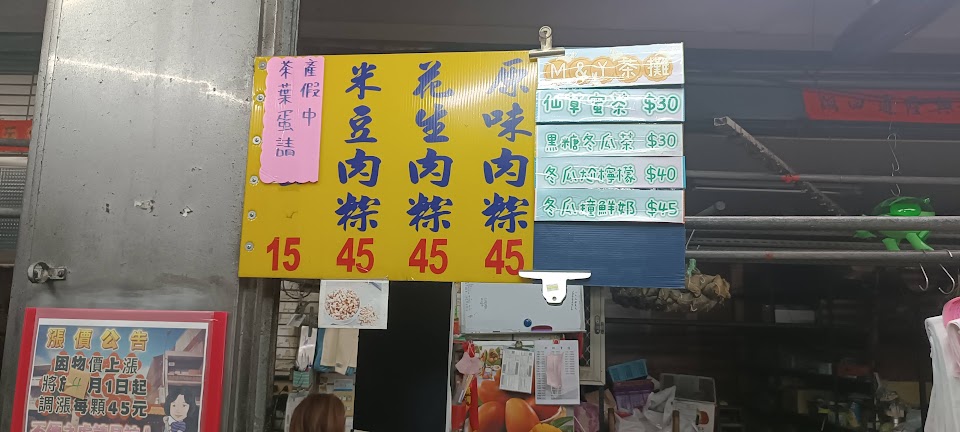 茶葉蛋請
產假中
15
米豆肉粽
45
花生肉粽
45
原味肉粽
45
M&Y茶攤
仙草蜜茶 $30
黑糖冬瓜茶 $30
冬瓜尬檸檬 $40
冬瓜撞鮮奶 $45
漲價公告
因物價上漲
將於4月1日起
調漲每顆45元